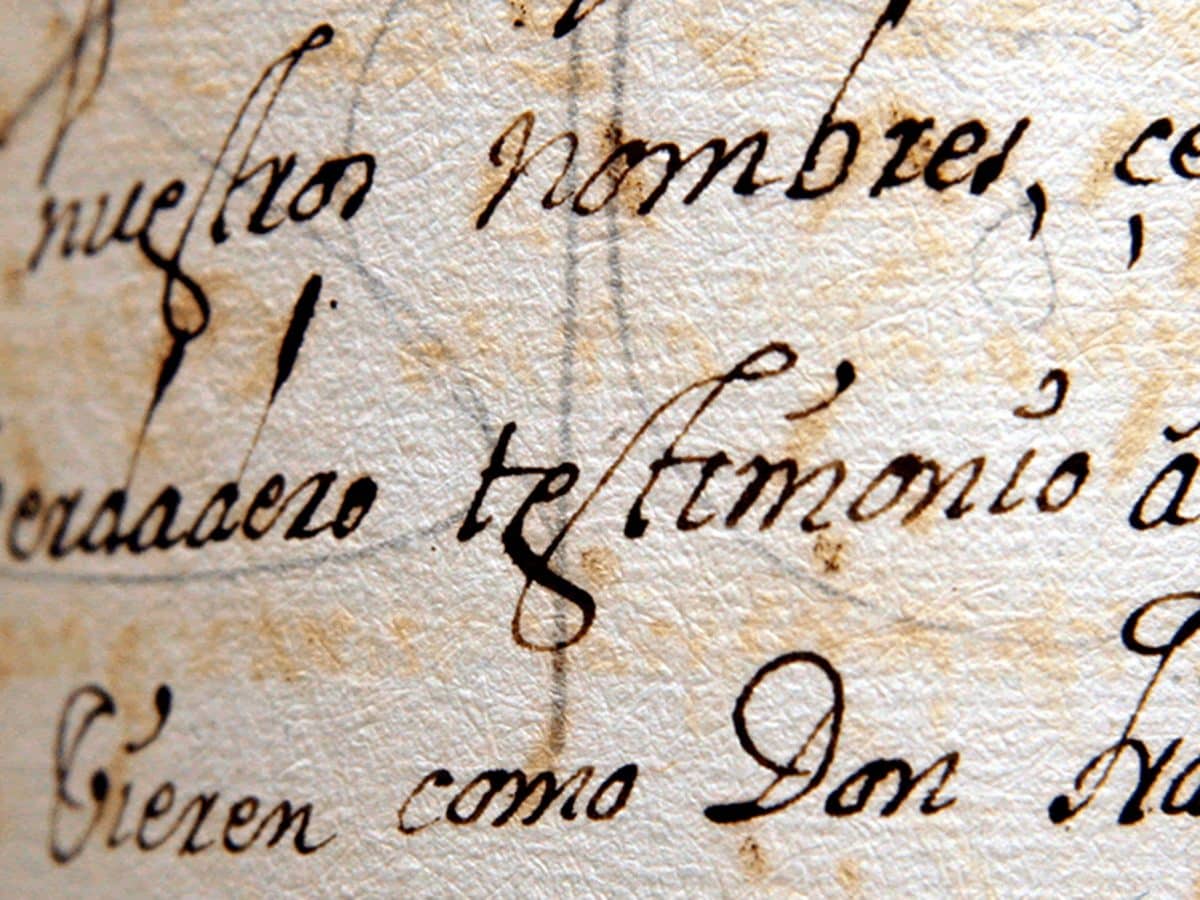 nuestros nombres, çe
verdadero testimonio á
vieren como Don fra